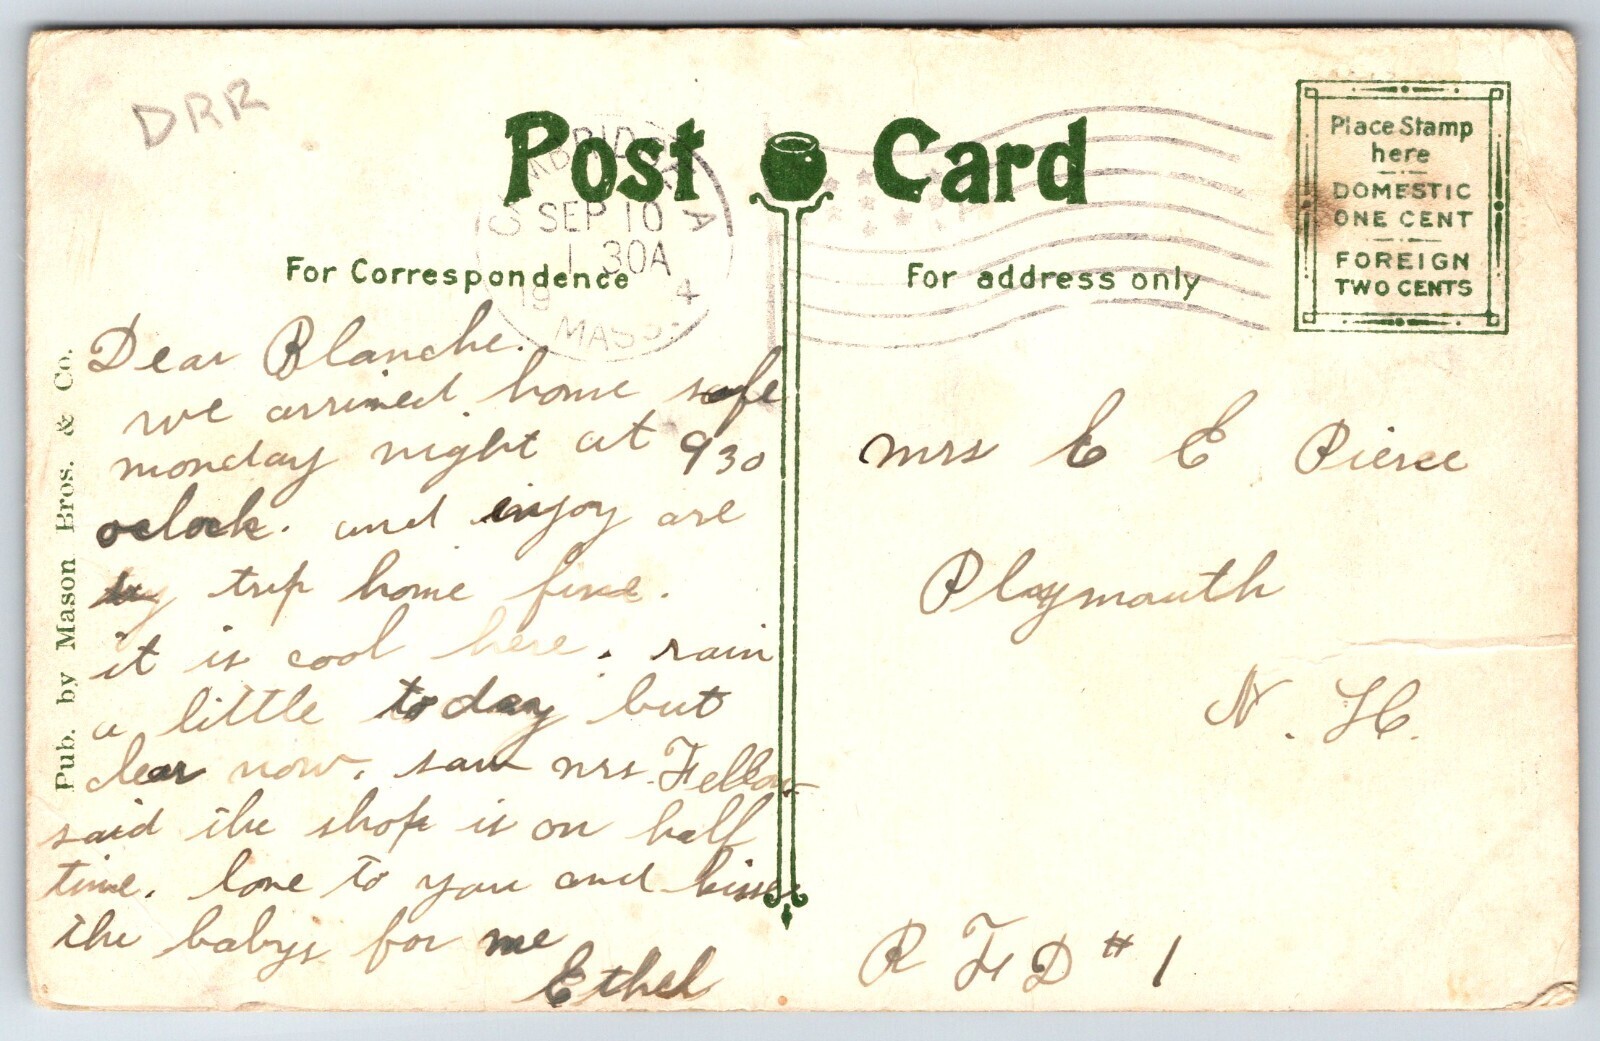 DRR
Post Card
CAMBRIDGE A
SEP 10
1 30A
19 4
MASS.
Place Stamp
here
DOMESTIC
ONE CENT
FOREIGN
TWO CENTS
For Correspondence
For address only
Pub. by Mason Bros. & Co.
Dear Blanche.
we arrived home safe
monday night at 930
oclock. and enjoy are
trip home fine.
it is cool here. rain
a little today but
clear now. saw mrs. Fellow
said the shop is on half
time. love to you and kisse
the babys for me
Ethel
mrs E E Pierce
Playmouth
N. H.
R F D # 1